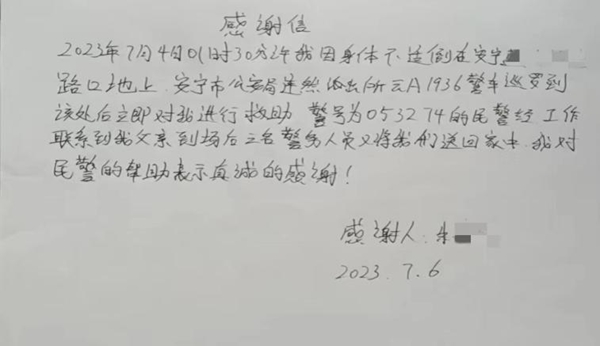 感谢信
2023年7月4日01时30分许我因身体不适倒在安宁
路口地上 安宁市公安局连然派出所云A1936警车巡罗到
该处后立即对我进行救助 警号为053274的民警经工作
联系到我父亲到场后三名警务人员又将我们送回家中.我对
民警的帮助表示真诚的感谢!
感谢人:朱
2023.7.6